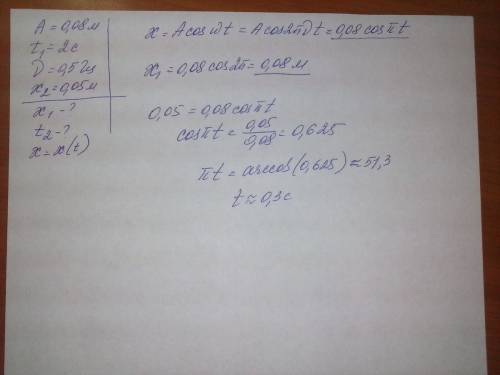 A = 0,08 м
t₁ = 2 с
ν = 0,5 Гц
x₂ = 0,05 м
x₁ - ?
t₂ - ?
x = x(t)
x = A cos ωt = A cos 2πνt = 0,08 cos πt
x₁ = 0,08 cos 2π = 0,08 м
0,05 = 0,08 cos πt
cos πt = 0,05/0,08 = 0,625
πt = arccos(0,625) ≈ 51,3
t ≈ 0,3 с